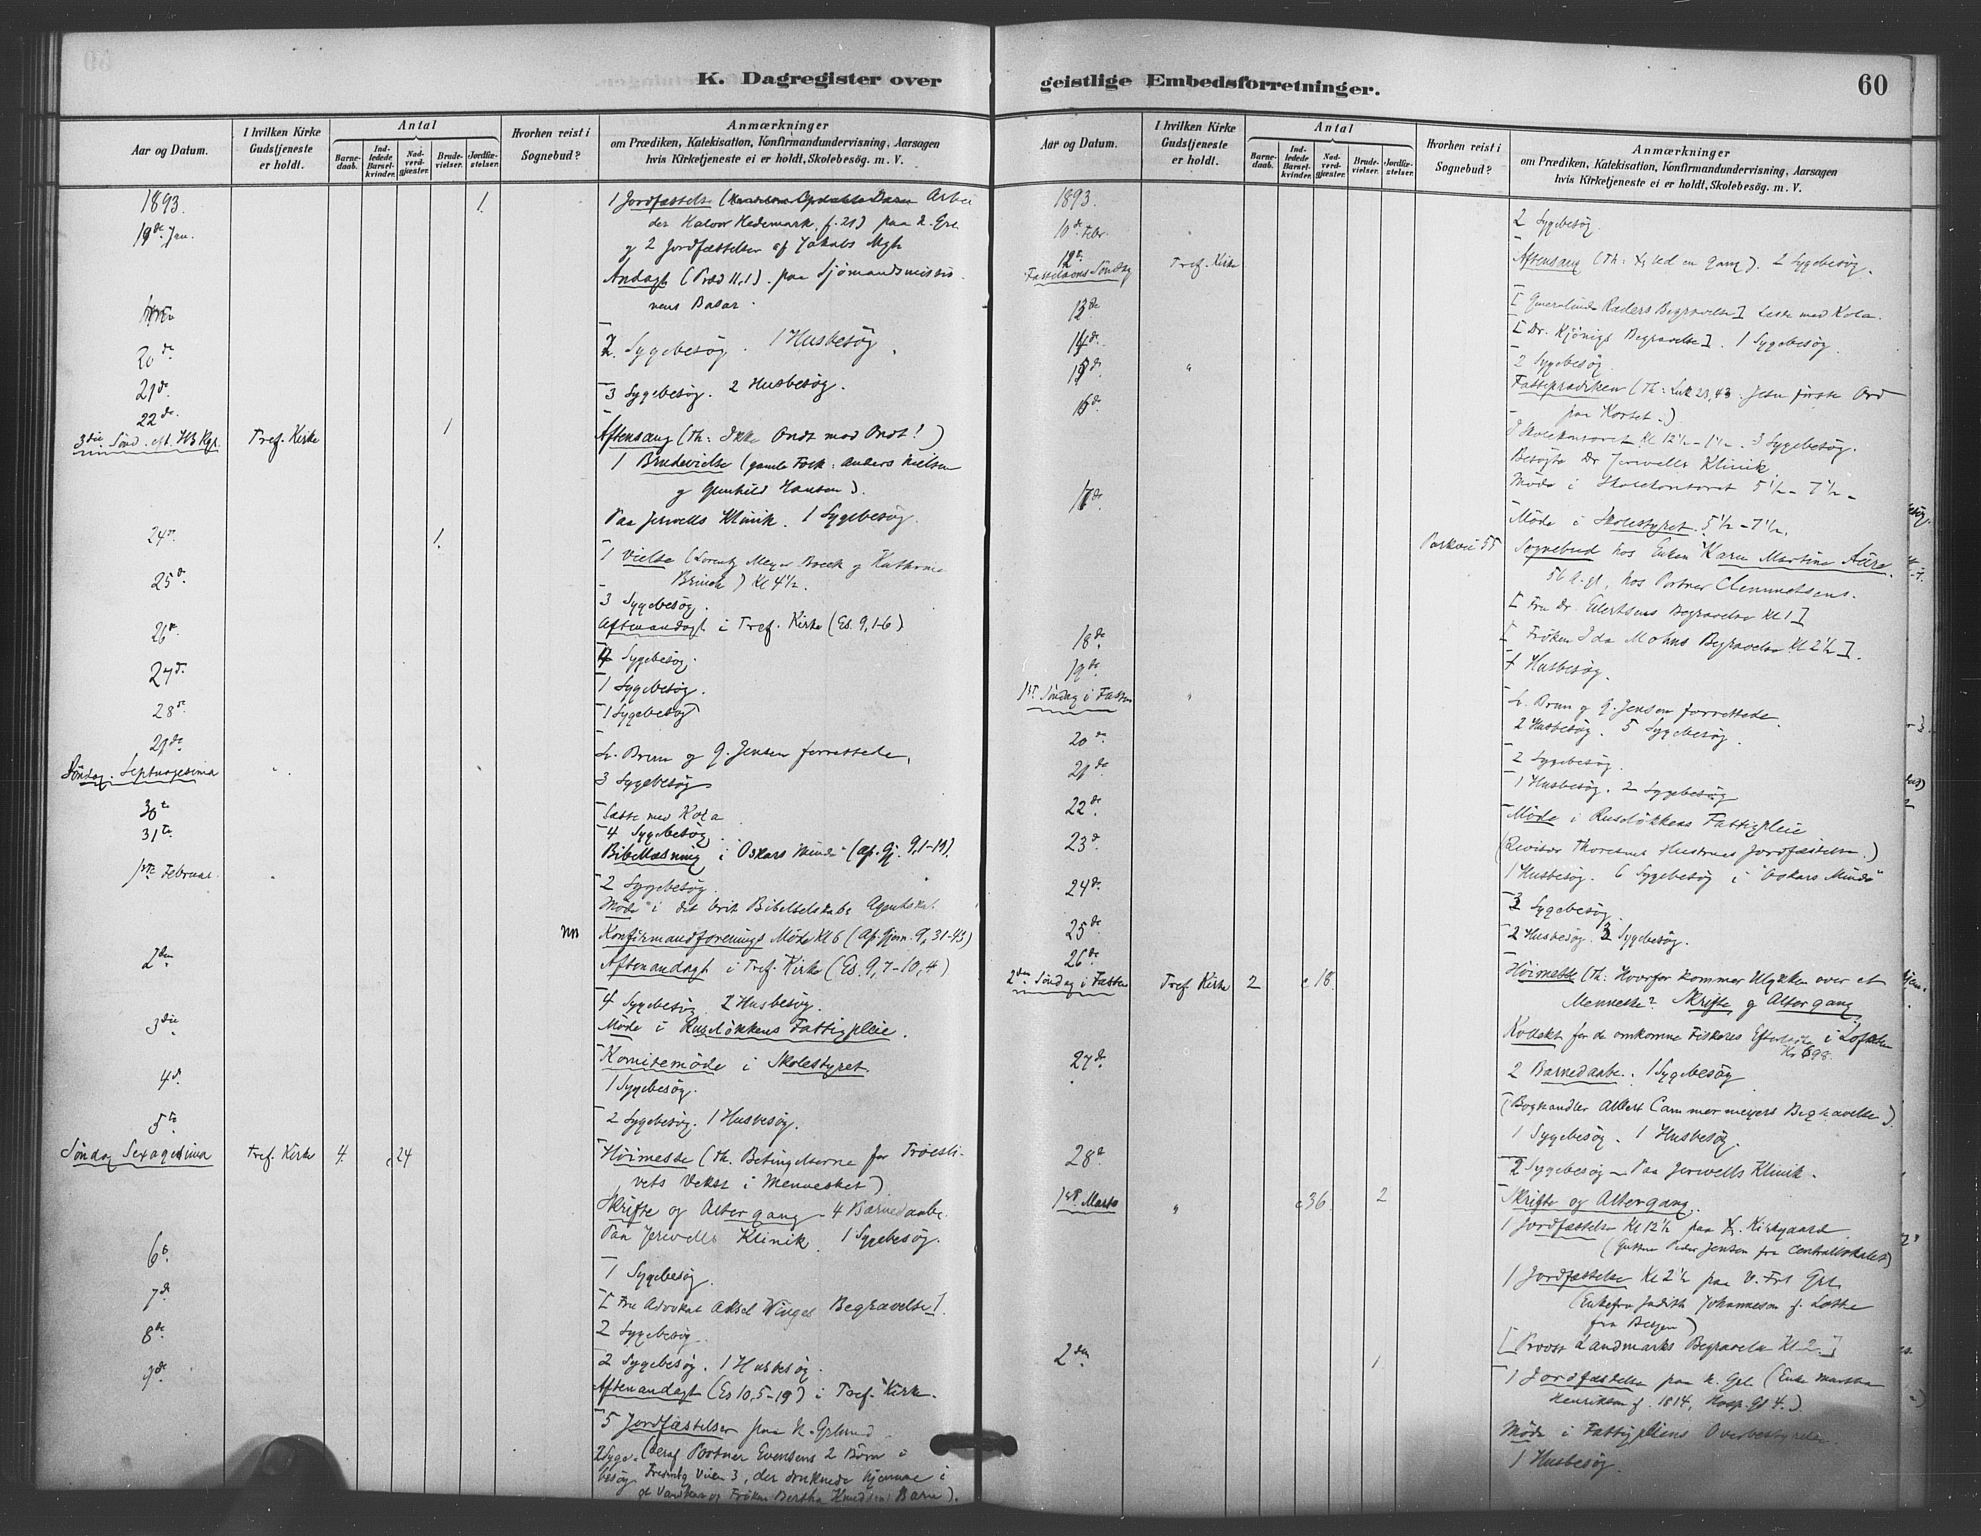 K. Dagregister over
Aar og Datum.
I hvilken Kirke Gudstjeneste er holdt.
Antal
Barnedaab.
Indledede Barselkvinder.
Nadverdgjæster.
Brudevielser.
Jordfæstelser.
Hvorhen reist i Sognebud?
Anmærkninger
om Prædiken, Katekisation, Konfirmandundervisning, Aarsagen
hvis Kirketjeneste ei er holdt, Skolebesøg. m. V.
1893.
1
1 Jordfæstelse Arbei
der Halvor Hedemark, f. 21) paa
19de Jan.
og 2 Jordfæstelser af Jakobs Mgh
Andagt (Præd 11,1). paa Sjømandsmissio
nens Basar.
20de
2 Sygebesøg. 1 Husbesøg.
21de
3 Sygebesøg. 2 Husbesøg.
22de
3die Sønd. eft. H3 Kgr. Tref. Kirke 1 Aftensang (Th: Ikke Ondt mod Ondt!)
1 Brudevielse (gamle Folk: Anders Nielsen
og Gunhild Hansen).
Paa Jervells Klinik. 1 Sygebesøg.
24de 1.
1 Vielse (Lorentz Meyer Boeck og Kathrine
Brinch) Kl 4½.
25de
3 Sygebesøg.
Aftenandagt i Tref. Kirke (Es. 9,1-6)
26de
Sygebesøg.
27de
1 Sygebesøg.
28de
1 Sygebesøg
29de
Søndag Septuagesima " L. Brun og G. Jensen forrettede.
3 Sygebesøg
30te
Læste med Kola
31te
4 Sygebesøg.
Bibellæsning i Oskars Minde (Ap. Gj. 9,1-19).
1ste Februar. "
2 Sygebesøg.
Møde i det brit Bibelselskabs Agentskab
Konfirmandforenings Møde Kl 6 (Ap. Gjern. 9,31-43)
2den Aftenandagt i Tref. Kirke (Es. 9,7-10,4)
4 Sygebesøg 2 Husbesøg.
3die Møde i Ruseløkkens Fattigpleie.
Komitemøde i Skolestyret
4de 1 Sygebesøg.
5te 2 Sygebesøg. 1 Husbesøg.
Søndag Sexagesima Tref. Kirke 4. 24 Høimesse (Th. Betingelserne for Troesli-
vets Vekst i Mennesket)
Skrifte og Altergang 4 Barnedaabe.
Paa Jervells Klinik. 1 Sygebesøg.
6te
1 Sygebesøg.
7de [Fru Advokat Aksel Winges Begravelse].
2 Sygebesøg.
8de
2 Sygebesøg. 1 Husbesøg.
9de Aftenandagt (Es 10,5-19) i Tref. Kirke.
5 Jordfæstelser paa N. Grlund.
2 Syge- (deraf Portner Evensens 2 Børn i
besøg Veien 3, der druknede hjemme i
et Vandkar og Frøken Bertha Knudsens Barn).
geistlige Embedsforretninger.
60
Aar og Datum.
I hvilken Kirke Gudstjeneste er holdt.
Antal
Barnedaab.
Indledede Barselkvinder.
Nadverdgjæster.
Brudevielser.
Jordfæstelser.
Hvorhen reist i Sognebud?
Anmærkninger
om Prædiken, Katekisation, Konfirmandundervisning, Aarsagen
hvis Kirketjeneste ei er holdt, Skolebesøg. m. V.
1893.
10de Febr. 2 Sygebesøg.
12te
Fastelavns Søndag Tref. Kirke Aftensang (Th: Ved en Gang). 2 Sygebesøg.
13de [Generalinde Ræders Begravelse] Læste med Kola.
14de [Dr. Kjønigs Begravelse]. 1 Sygebesøg.
15de " 2 Sygebesøg.
Fasteprædiken (Th: Luk 23,43. Jesu første Ord
paa Korset.)
16de
Skolekontoret Kl 12½-1½. 3 Sygebesøg.
Besøgte Dr Jervells Klinik.
Møde i Skolekontoret 5½-7½
17de
Møde i Skolestyret 5½-7½.
Parkvei 55 Sognebud hos Enken Karen Martine Aure
56 A. gl, hos Portner Clemmetsens.
[Fru Dr. Eilertsens Begravelse Kl 1]
18de [Frøken Ida Mohns Begravelse Kl 2½].
19de Husbesøg.
1ste Søndag i Fasten " L. Brun og G. Jensen forrettede.
20de 2 Husbesøg. 5 Sygebesøg.
21de 2 Sygebesøg.
1 Husbesøg. 2 Sygebesøg
22de Møde i Ruseløkkens Fattigpleie
23de (Revisor Thoresens Hustrues Jordfæstelse.)
1 Husbesøg. 6 Sygebesøg i "Oskars Minde"
24de 3 Sygebesøg.
25de 2 Husbesøg. 3 Sygebesøg.
26de
2den Søndag i Fasten Tref Kirke 2 18 Høimesse (Th: Hvorfor kommer Ulykken over et
Menneske? Skrifte og Altergang
Kollekt for de omkomne Fiskeres Efterladte i Lofoten
Kr 698.
27de 2 Barnedaabe. 1 Sygebesøg
(Boghandler Albert Cammermeyers Begravelse).
1 Sygebesøg. 1 Husbesøg.
28de 2 Sygebesøg. Paa Jervells Klinik.
1ste Marts " 36 2 Skrifte og Altergang.
1 Jordfæstelse Kl 12½ paa Kirkegaard
(Gutten Peder Jensen fra Centrallokalet)
1 Jordfæstelse Kl 2½ paa V. Frl Grl.
(Enkefru Judith Johannesen f. Lothe
fra Bergen)
2den 1 [Provst Landmarks Begravelse Kl 2.]
1 Jordfæstelse paa N. Grl (Enke Martha
Henriksen f. 1814, Hosp. Gd 4.)
Møde i Fattigpleiens Overbestyrelse.
1 Husbesøg.